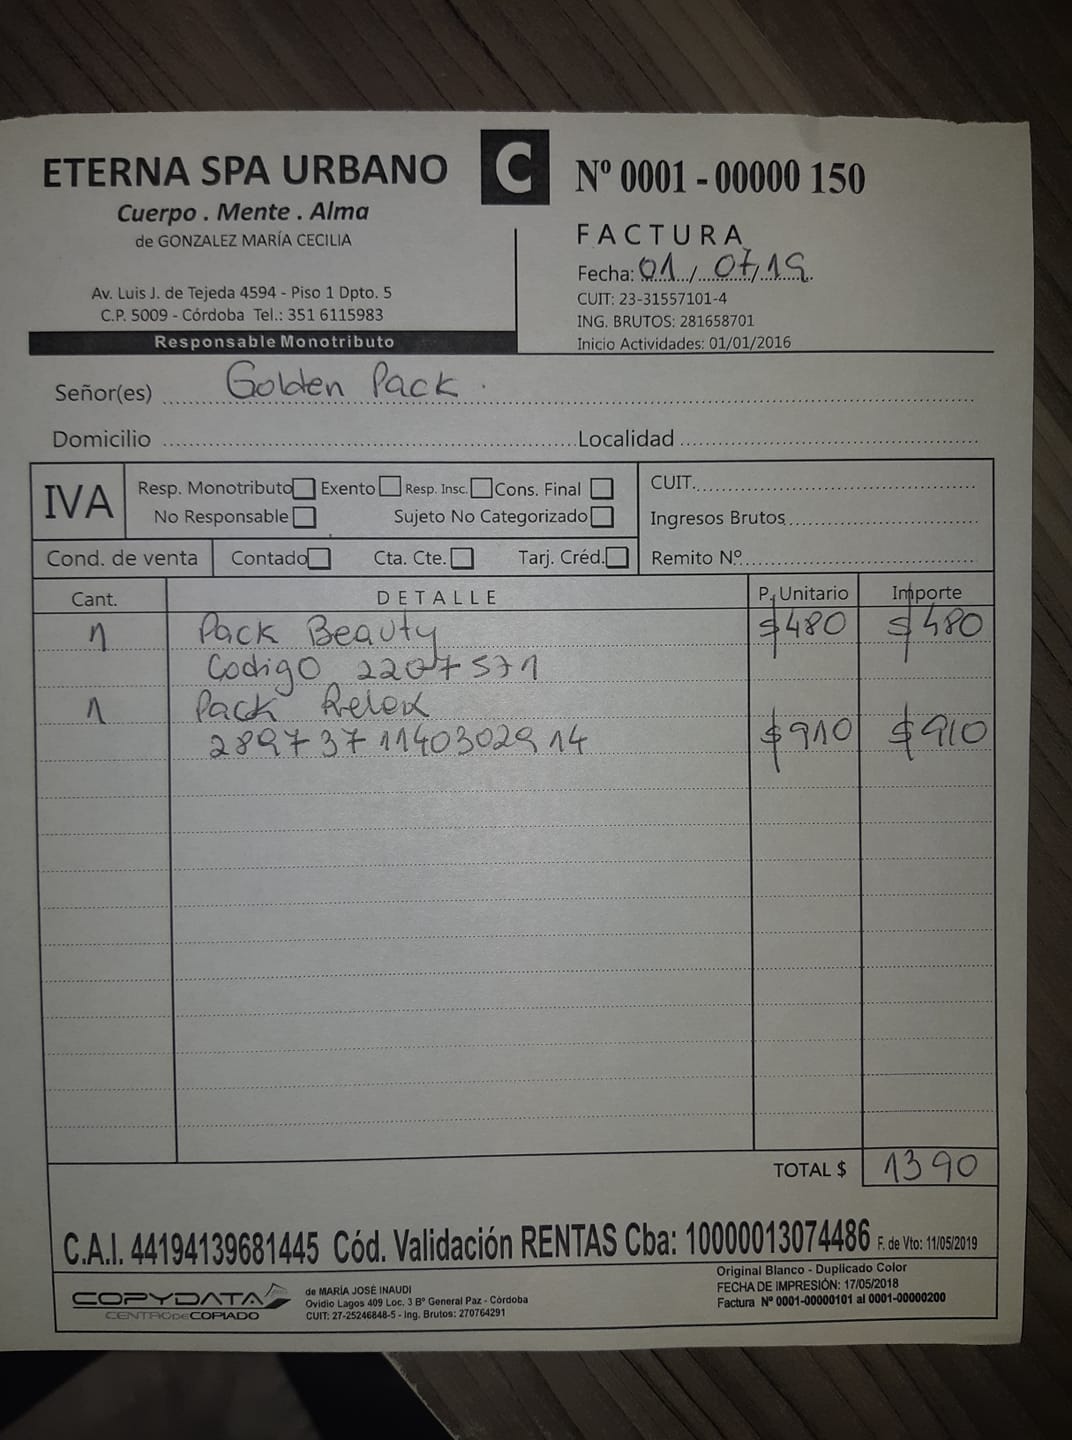 ETERNA SPA URBANO
Cuerpo . Mente . Alma
de GONZALEZ MARÍA CECILIA
Av. Luis J. de Tejeda 4594 - Piso 1 Dpto. 5
C.P. 5009 - Córdoba Tel.: 351 6115983
Responsable Monotributo
C
Nº 0001 - 00000 150
FACTURA
Fecha: 01/07/19
CUIT: 23-31557101-4
ING. BRUTOS: 281658701
Inicio Actividades: 01/01/2016
Señor(es) Golden Pack.
Domicilio Localidad
IVA
Resp. Monotributo Exento Resp. Insc. Cons. Final
No Responsable Sujeto No Categorizado
CUIT.
Ingresos Brutos
Cond. de venta Contado Cta. Cte. Tarj. Créd. Remito Nº
Cant. DETALLE P. Unitario Importe
1 Pack Beauty $480 $480
Codigo 2207571
1 Pack Relax
2897371140302914 $910 $910
TOTAL $ 1390
C.A.I. 44194139681445 Cód. Validación RENTAS Cba: 10000013074486 F. de Vto: 11/05/2019
COPYDATA
CENTRO DE COPIADO
de MARÍA JOSÉ INAUDI
Ovidio Lagos 409 Loc. 3 Bº General Paz - Córdoba
CUIT: 27-25246848-5 - Ing. Brutos: 270764291
Original Blanco - Duplicado Color
FECHA DE IMPRESIÓN: 17/05/2018
Factura Nº 0001-00000101 al 0001-00000200